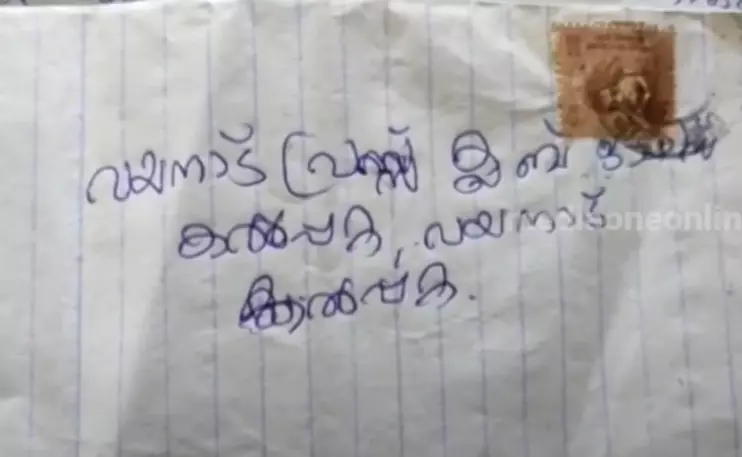 വയനാട് പ്രസ്സ് ക്ലബ്
കൽപ്പറ്റ, വയനാട്
കൽപ്പറ്റ.
mediaoneonlin